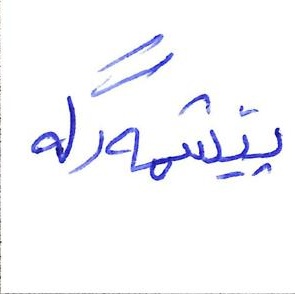 پێشمەرگە